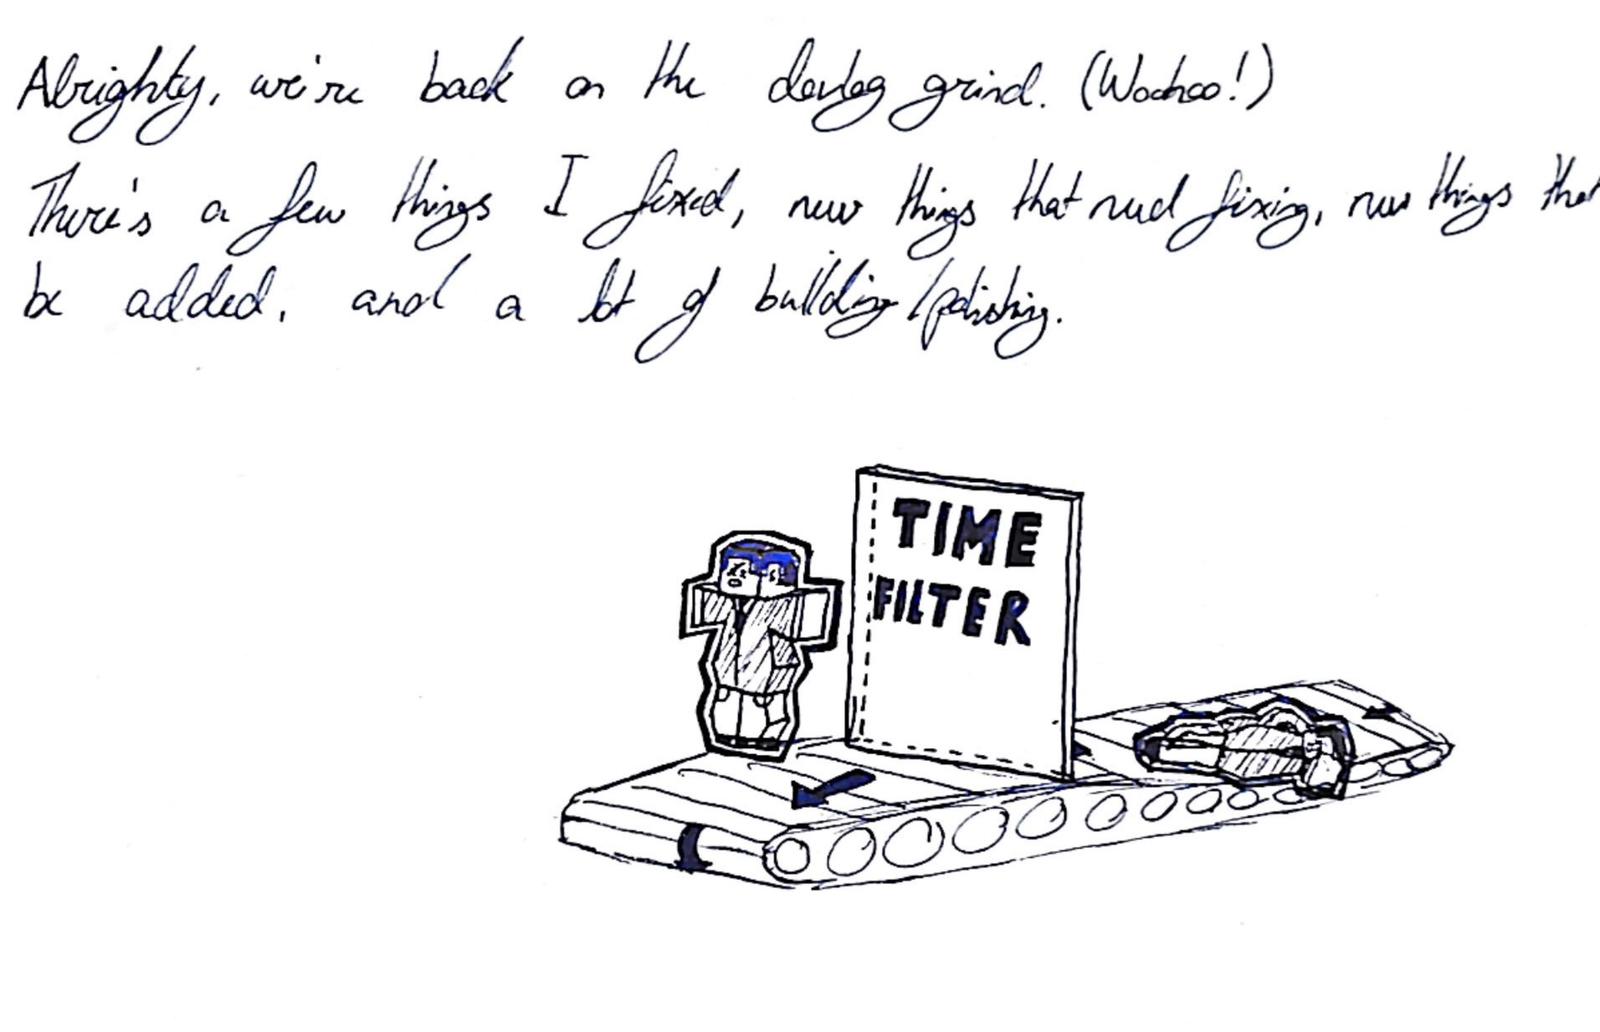 Alrighty, we're back on the devlog grind. (Woohoo!)
There's a few things I fixed, new things that need fixing, new things that
be added, and a lot of building/polishing.
TIME
FILTER